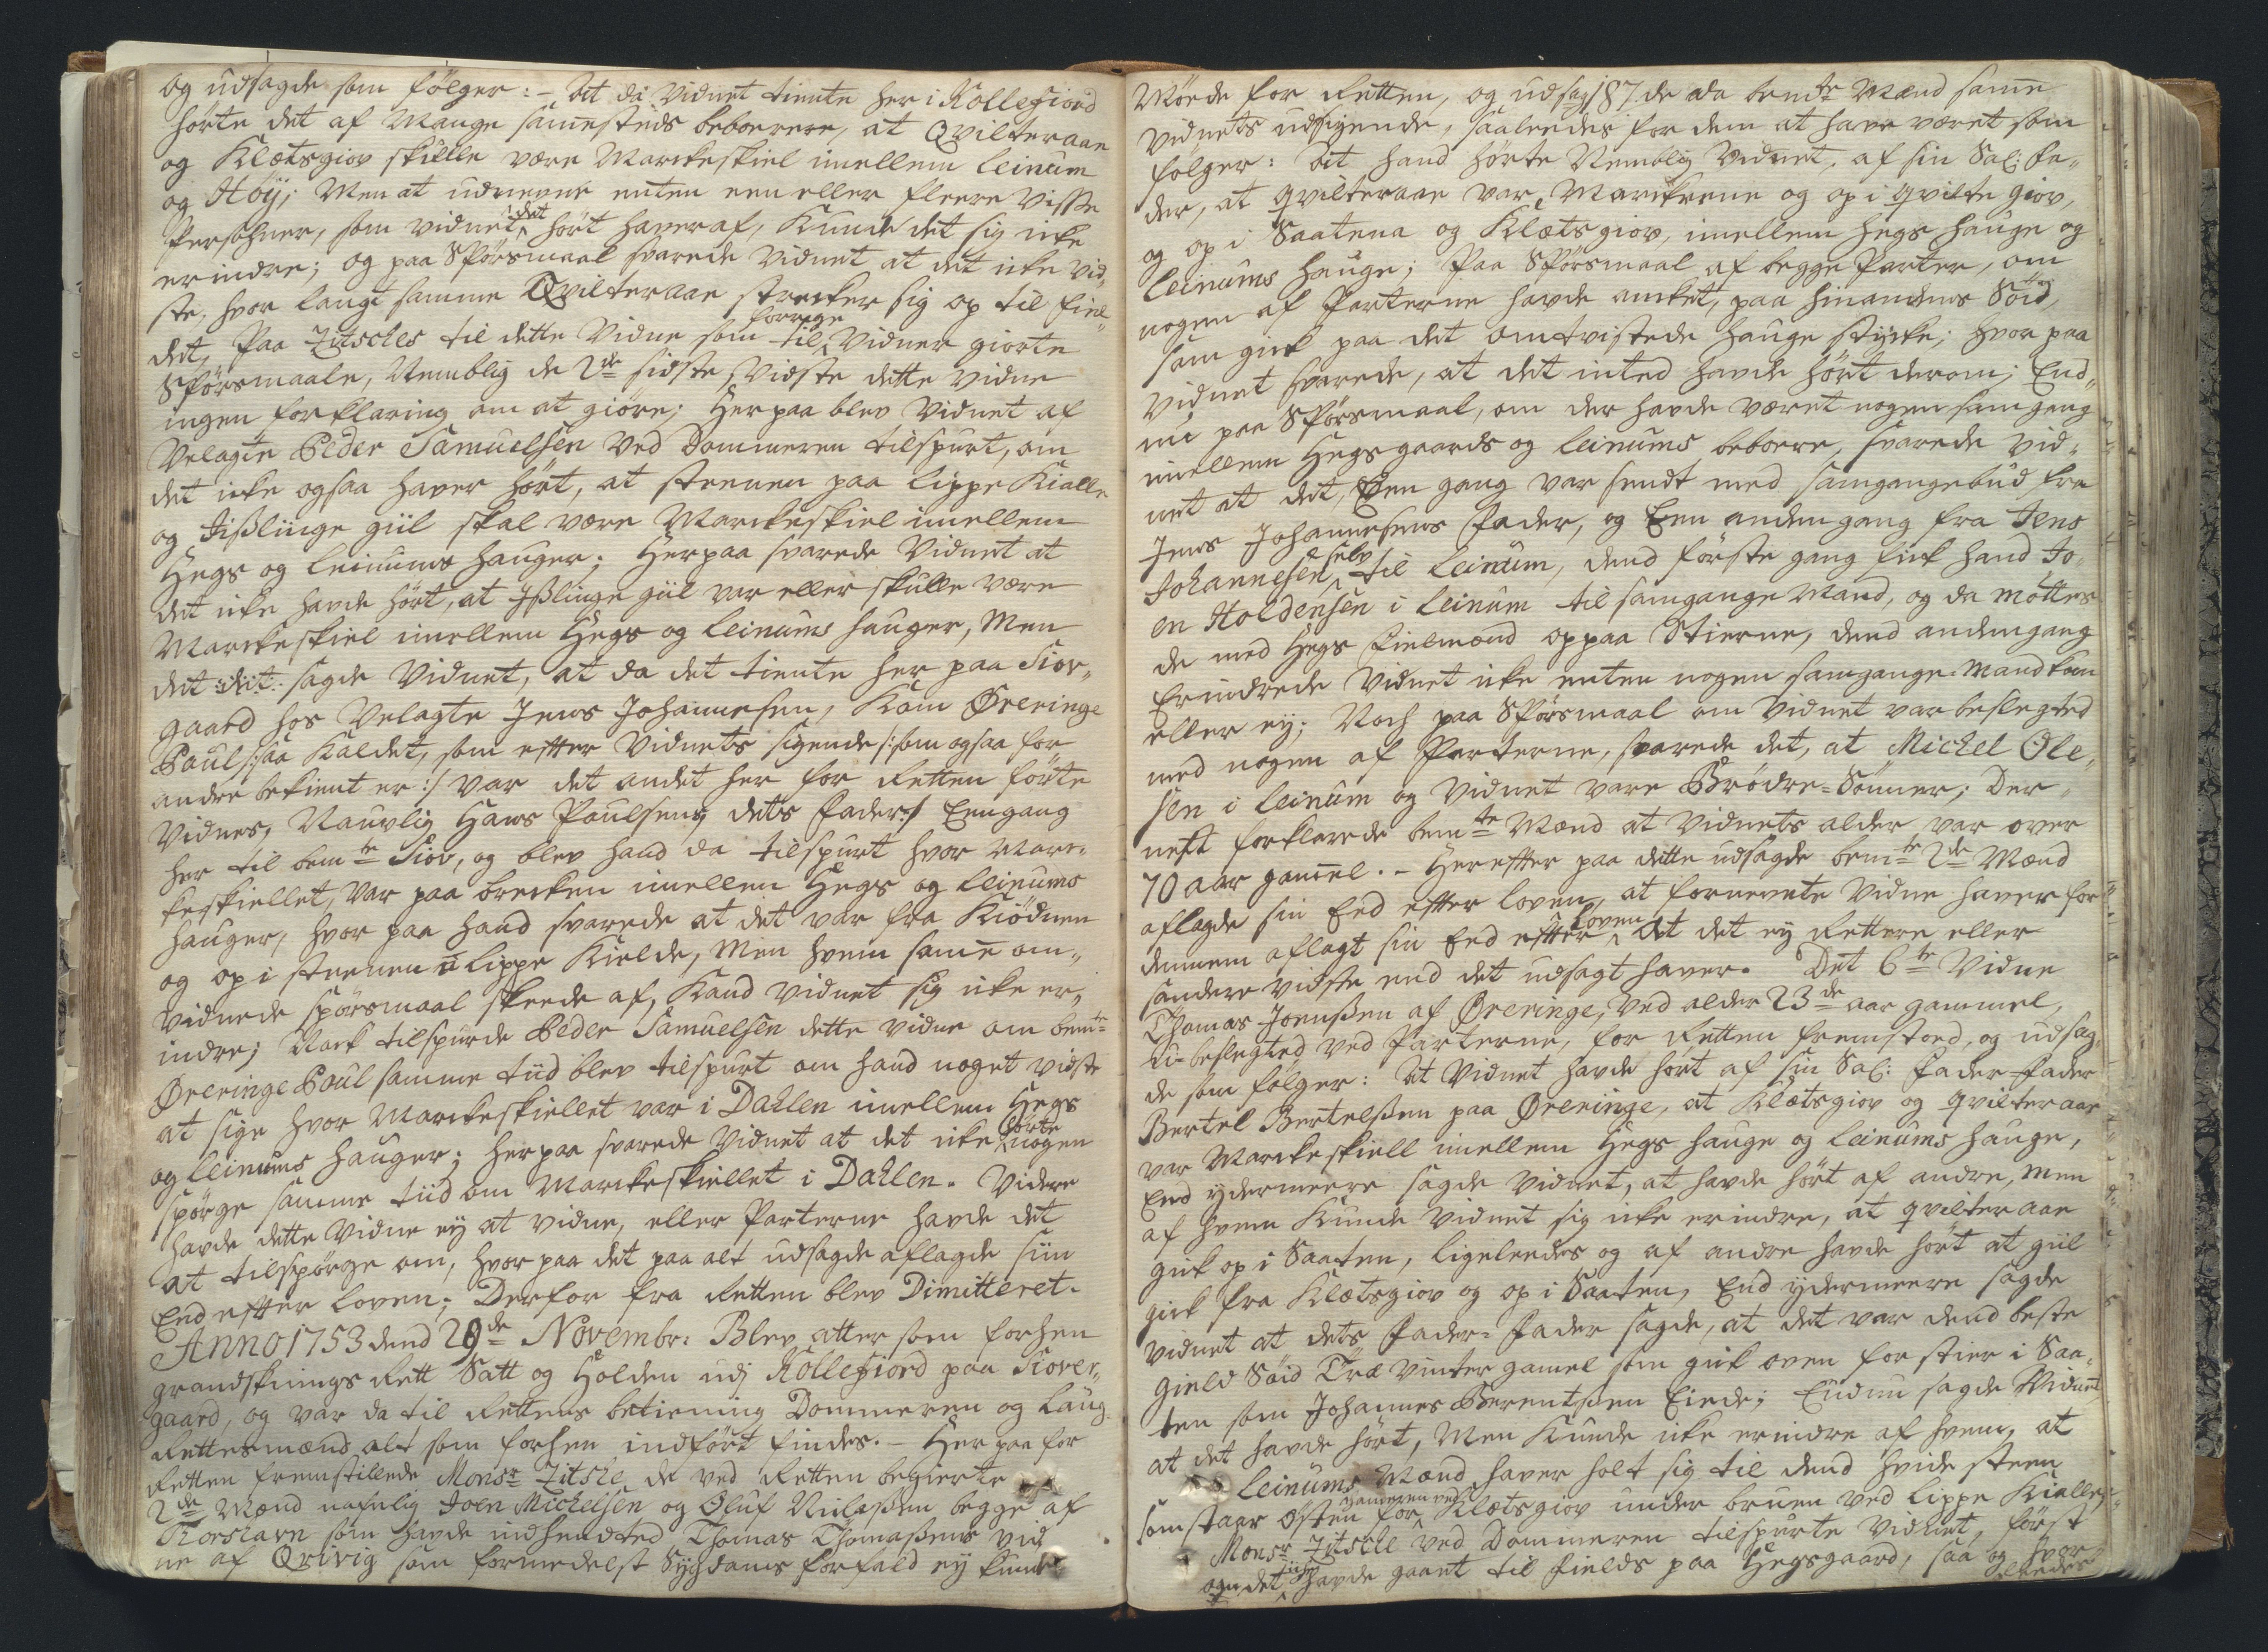 og udsagde som fölger: - At da Vidnet tiente her i Kollefiord
hörte det af Mange samesteds beboerere, at Qvilteraan
og Klætsgiov skulle være Marckeskiel imellem Leinum
og Höy; Men at udnevne enten een eller fleere Visse
Persohner, som vidnet det hört haver af, Kunde det sig icke
erindre; og paa Spörsmaal svarede Vidnet at det icke vid„
ste, hvor langt samme Qvilteraae strecker sig op til fiel„
det, Paa Zitscles til dette Vidne som til forrige Vidner giorte
Spörsmaale, Nemblig de 2de sidste Vidste dette Vidne
ingen forklaring om at giöre; Herpaa blev Vidnet af
Velagte Peder Samuelsen Ved Dommeren tilspurt, om
det icke ogsaa haver hört, at steenen paa Lippe Kialle
og Fisslinge giil skal være Marckeskiel imellem
Hegs og Leinums Hauger; Herpaa svarede Vidnet at
det icke havde hört, at Fisslinge giil var eller skulle være
Marckeskiel imellem Hegs og Leinums hauger, Men
det :det: sagde Vidnet, at da det tiente her paa Siov„
gaard hos Velagte Jens Johannesen, Kom Öreringe
Poul /:saa Kaldet, som efter Vidnets sigende /:som ogsaa for
andre bekient er :/ var det andet her for Retten förte
Vidnes, Navnlig Hans Poulsens dets Fader:/ Eengang
her til bemte Siov, og blev hand da tilspurt hvor Marc„
keskiellet, Var paa brecken imellem Hegs og Leinums
Hauger, hvor paa hand svarede at det var fra Kiödnen
og op i steenen i Lippe Kielde, Men hvem same om„
vidnede spörsmaal skeede af, Kand Vidnet sig icke er„
indre; Nock tilspurde Peder Samuelsen dette Vidne om bemte
Öreringe Poul samme tiid blev tilspurt om hand noget vidste
at sige hvor Marckeskiellet var i Dahlen imellem Hegs
og Leinums hauger; herpaa svarede Vidnet at det icke hörte nogen
spörge samme tiid om Marckeskiellet i Dahlen. Videre
havde dette Vidne ey at vidne, eller Parterne havde det
at tilspörge om, hvor paa det paa alt udsagde aflagde siin
Eed efter Loven; Derfor fra Retten blev Dimitteret.
Anno 1753 dend 29de Novembr: Blev atter som forhen
grandsknings Rett Satt og Holden udj Kollefiord paa Siover„
gaard, og var da til Rettens betiening Dommeren og Laug
Rettesmænd alt som forhen indfört findes. - Her paa for
Retten fremstillede Monsr Zitscle de ved Retten begierte
2de Mænd nafnlig Joen Michelsen og Oluf Niclassen begge af
Torslavn som havde indhendted Thomas Thomassens Vid
ne af Qvivig som formedelst Sygdoms forfald ey kunde
Möede for Retten, og udsag 187. de da bemte Mænd same
Vidnets udsigende, saaleedes for dem at have været som
fölger: At hand hörte Nemblig Vidnet, af sin Sal: Fa„
der, at qvilteraae var Marckerne og op i qvilte giov,
og op i Saatena og Klætsgiov, imellem Hegs hauge og
Leinums hauge; Paa Spörsmaal af begge Parter, om
nogen af Parterne havde ancket, paa hinandens Söid,
som gick paa det omtvistede hauge stycke; hvor paa
Vidnet svarede, at det inted havde hört derom; End„
nu paa Spörsmaal, om der havde været nogen samgang
imellem Hegsgaards og Leinums beboere, svarede Vid„
net at det, Een gang var sendt med samgangebud fra
Jens Johannesens Fader, og Een anden gang fra Jens
Johannesen selv til Leinum, dend förste gang fick hand Jo„
en Holdensen i Leinum til samgange Mand, og da mötte
de med Hegs Fielmænd oppaa Stierne, dend anden gang
Erindrede Vidnet icke enten nogen samgange-Mand kom
eller ey; Noch paa Spörsmaal om Vidnet var beslegted
med nogen af Parterne, svarede det, at Michel Ole„
sen i Leinum og Vidnet vare Brödre-Sönner; Der„
nest forklarede bemte Mænd at Vidnets alder var over
70 aar gamel. - Herefter paa dette udsagde bemte 2de Mænd
aflagde sin Eed efter Loven, at fornevnte Vidne haver for
dennem aflagt sin Eed efter Loven at det ey Rettere eller
sandere vidste end det udsagt haver. Det 6te Vidne
Thomas Joenssen af Öreringe, ved alder 23de aar gammel,
u-beslegted ved Parterne, for Retten fremstoed, og udsag„
de som fölger: At Vidnet havde hört af sin Sal: Fader-Fader
Bertel Bertelssen paa Öreringe, at Klætsgiov og qvilteraae
var Marckeskiell imellem Hegs hauge og Leinums hauge,
End ydermeere sagde Vidnet, at havde hört af andre, Men
af hvem Kunde Vidnet sig icke erindre, at qvilteraae
gick op i Saaten, ligeleedes og af andre havde hört at giil
gick fra Klætsgiov og op i Saaten, End ydermeere sagde
Vidnet at dets Fader-Fader sagde, at det var dend beste
Gield Söid Træ Vinter gamel som gick oven for stier i Saa„
ten som Johannes Berentssen Eiede; Endnu sagde Vidnet
at det havde hört, Men Kunde icke erindre af hvem, at
Leinums Mænd haver holt sig til dend hvide steen
som staar Östen for Klætsgiov under bruen ved Lippe Kialle;
Monsr Zitscle ved Dommeren tilspurte Vidnet, först
om det havde gaaet til Fields paa Hegsgaard, saa og hvor
leedes